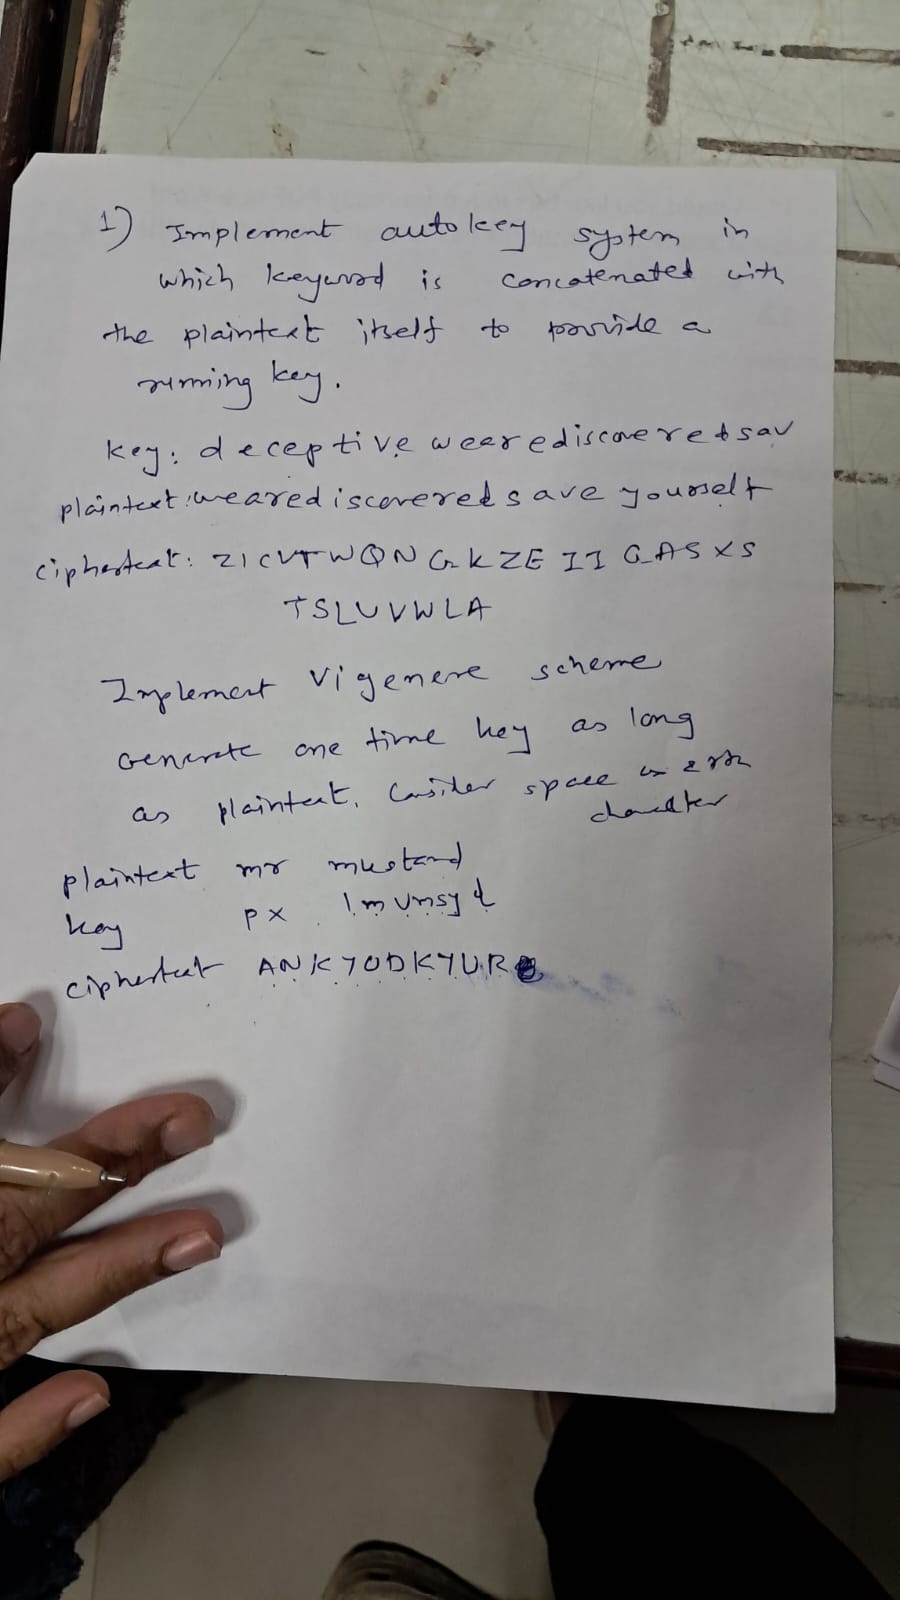 1) Implement autokey system in
which keyword is concatenated with
the plaintext itself to provide a
running key.
key: deceptive wearediscoveredsav
plaintext: wearediscoveredsave yourself
ciphertext: ZICVTWQNGKZEIIGASXS
TSLUVWLA
Implement Vigenere scheme
Generate one time key as long
as plaintext. Consider space as 27th
character
plaintext mr mustard
key px lmvmsyd
ciphertext ANKYODKYUR